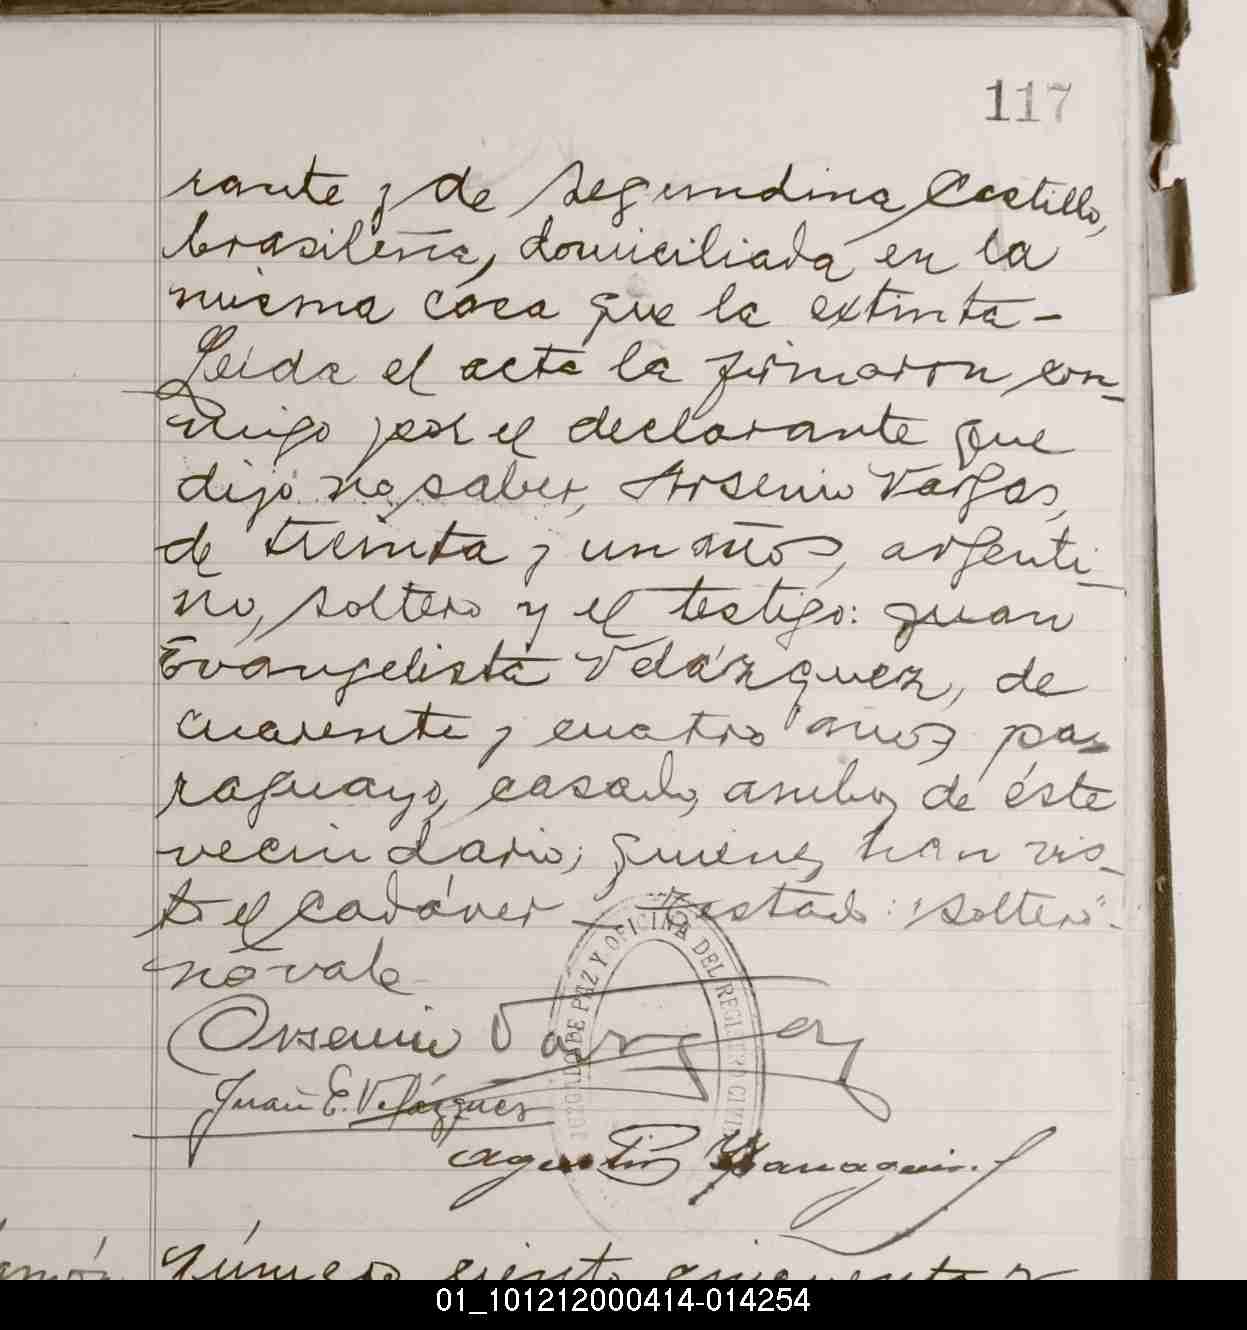 117
rante y de Segundina Castillo,
brasileña, domiciliada en la
misma casa que la extinta -
Leída el acta la firmaron con-
migo por el declarante que
dijo no saber, Arsenio Vargas,
de treinta y un años, argenti-
no, soltero y el testigo: Juan
Evangelista Velázquez, de
cuarenta y cuatro años pa-
raguayo, casado, ambos de éste
vecindario; quienes han vis-
to el cadáver - Testado: "soltero"-
no vale
Arsenio Vargas
Juan E. Velázquez
JUZGADO DE PAZ Y OFICINA DEL REGISTRO CIVIL
Agustin
Número ciento cincuenta y
01_101212000414-014254